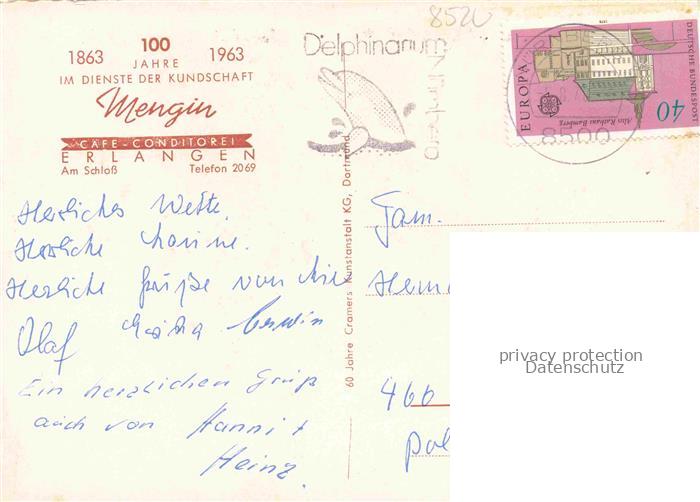 8520
100
1863 JAHRE 1963
IM DIENSTE DER KUNDSCHAFT
Mengin
CAFE-CONDITOREI
ERLANGEN
Am Schloß Telefon 2069
Delphinarium
Nürnberg
8500
DEUTSCHE BUNDESPOST
EUROPA
Altes Rathaus Bamberg
40
60 Jahre Cramers Kunstanstalt KG, Dortmund
Herrliches Wetter.
Herrliche
Herzliche Grüße von
Olaf
Ein herzlichen Gruß
auch von Hanni +
Heinz.
Fam.
466
privacy protection
Datenschutz